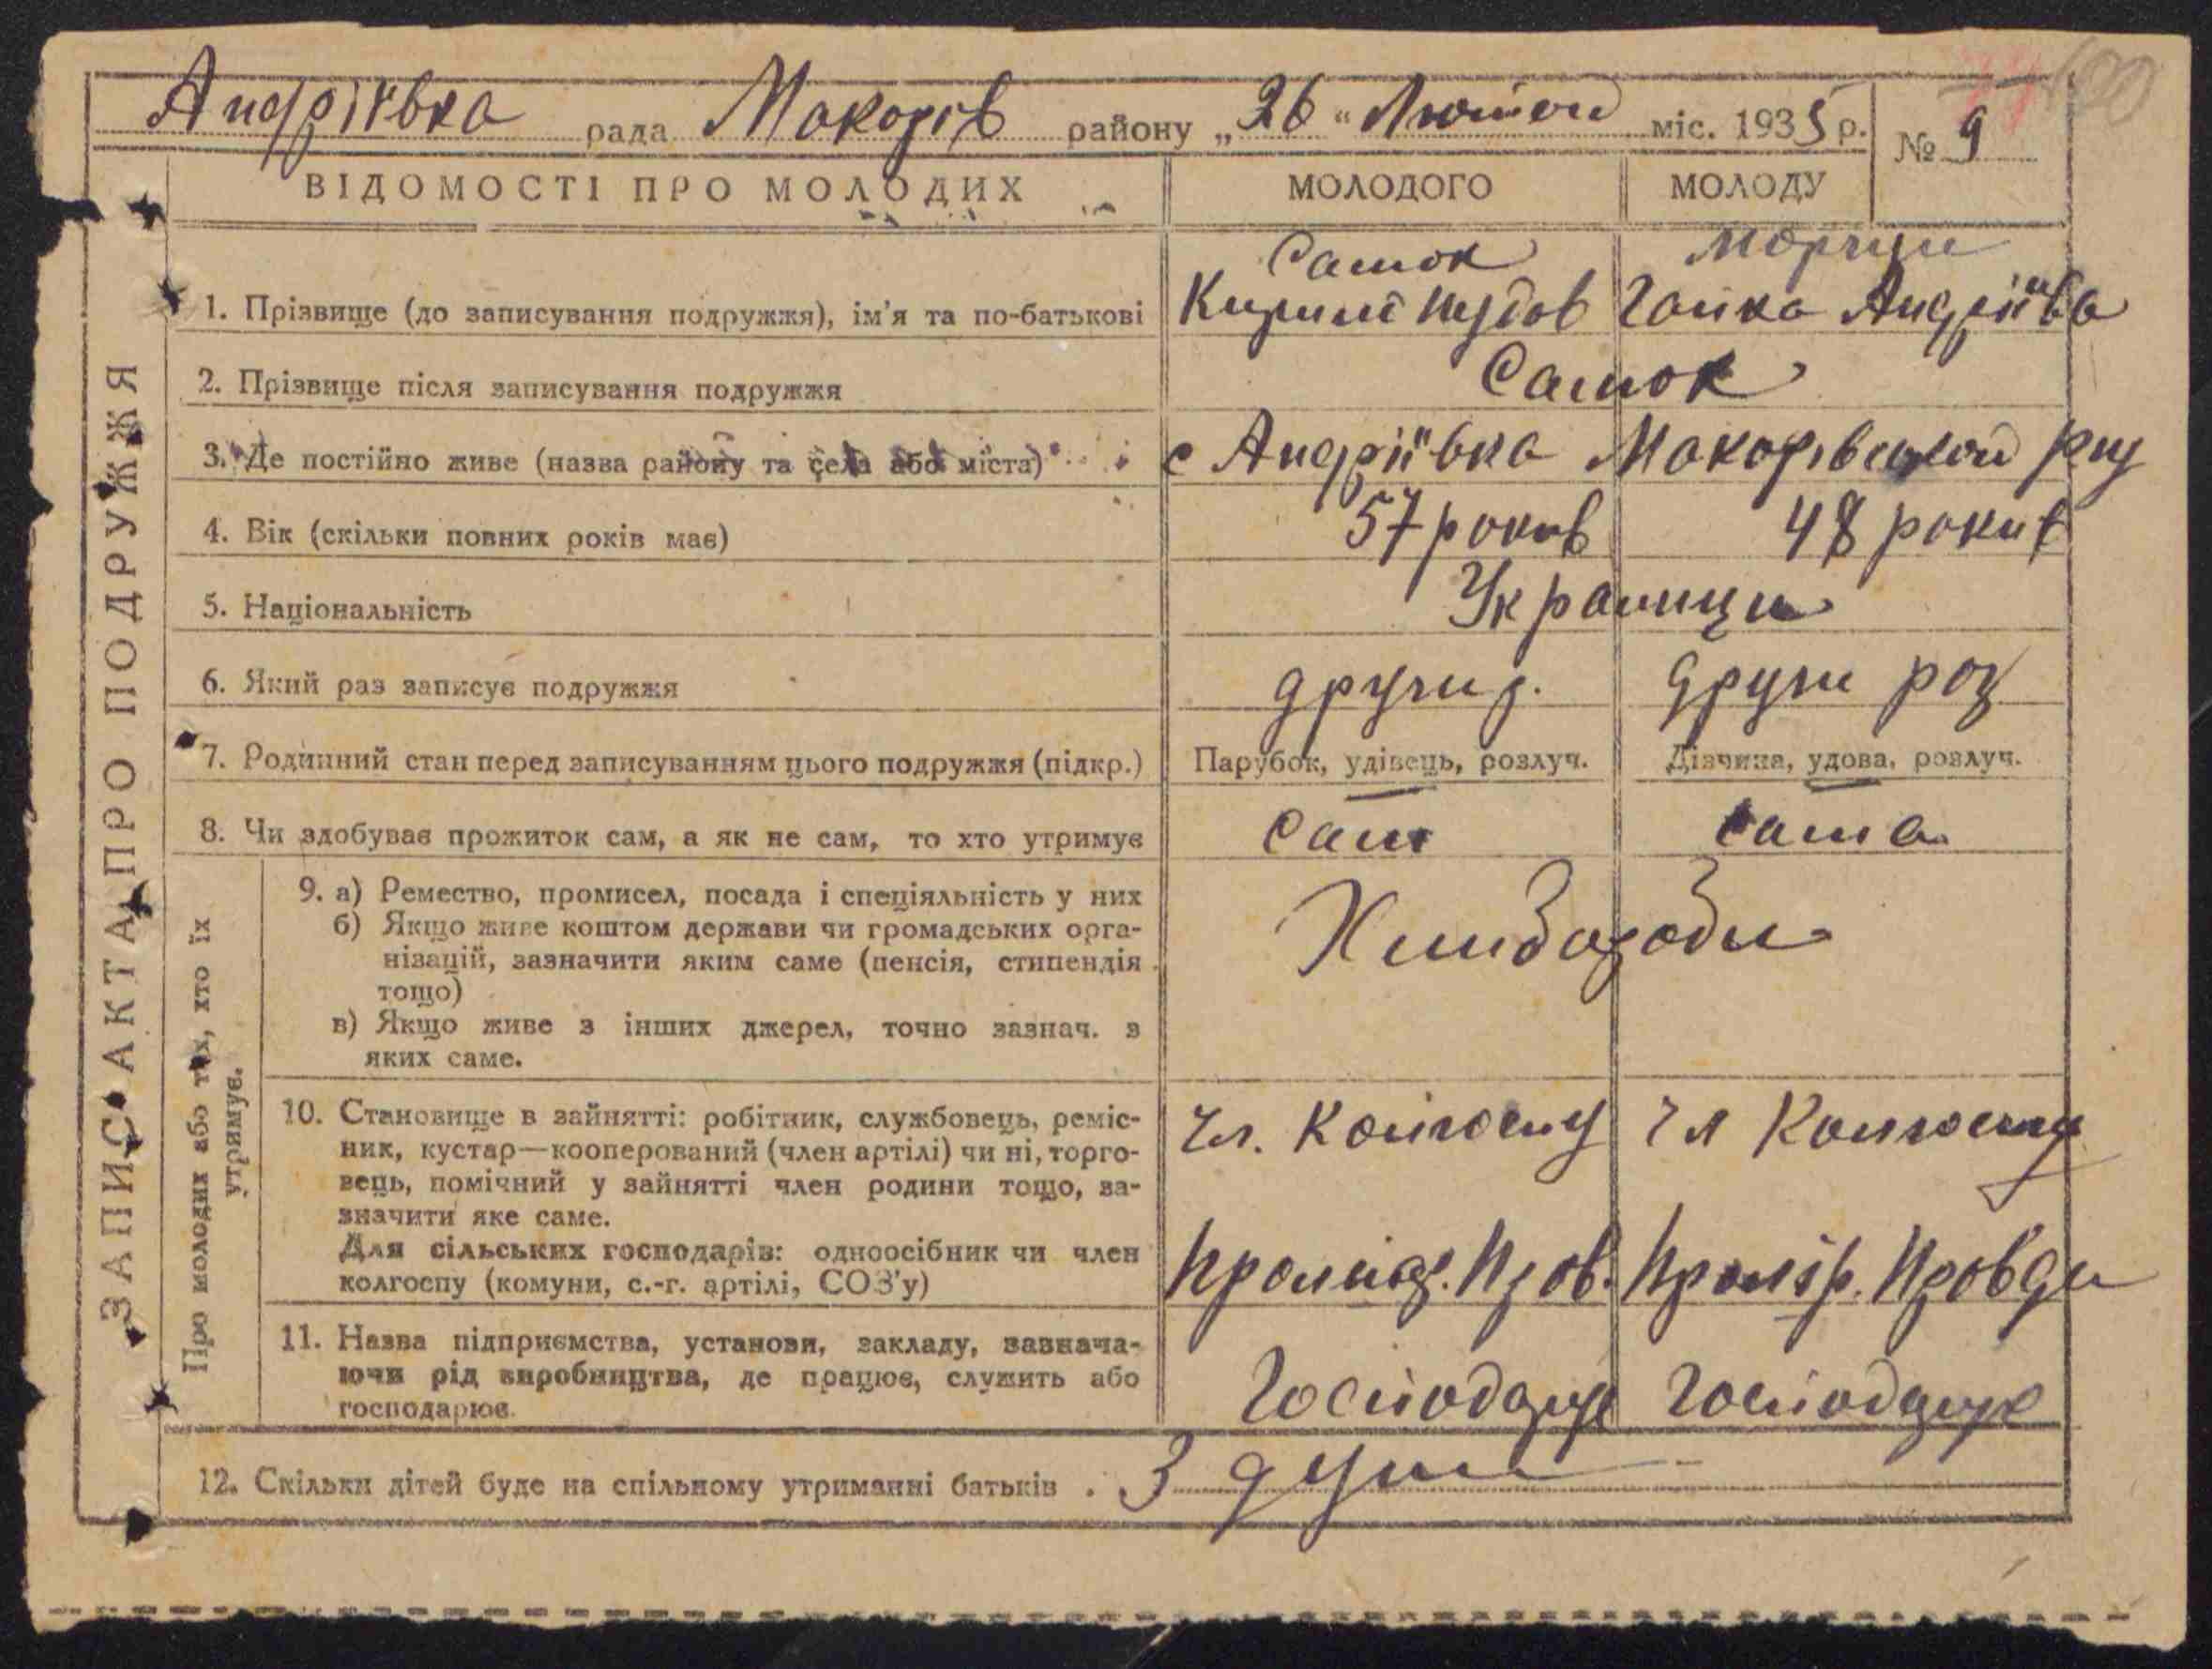 Андріївка рада Макарів району „26“ Лютого міс. 1935 р. № 9
ВІДОМОСТІ ПРО МОЛОДИХ
МОЛОДОГО
МОЛОДУ
ЗАПИС АКТА ПРО ПОДРУЖЖЯ
1. Прізвище (до записування подружжя), ім'я та по-батькові
Самок
Кирило
Ганка Андріївa
2. Прізвище після записування подружжя
Самок
3. Де постійно живе (назва району та села або міста)
с Андріївка Макарівського
4. Вік (скільки повних років має)
57 років
48 років
5. Національність
Українци
6. Який раз записує подружжя
други р.
други раз
7. Родинний стан перед записуванням цього подружжя (підкр.)
Парубок, удівець, розлуч.
Дівчина, удова, розлуч.
8. Чи здобуває прожиток сам, а як не сам, то хто утримує
сам
сама
Про молодих або тих, хто їх
утримує.
9. а) Ремество, промисел, посада і спеціяльність у них
б) Якщо живе коштом держави чи громадських орга-
нізацій, зазначити яким саме (пенсія, стипендія
тощо)
в) Якщо живе з інших джерел, точно зазнач. з
яких саме.
Хлиборобы
10. Становище в зайнятті: робітник, службовець, реміс-
ник, кустар—кооперований (член артілі) чи ні, торго-
вець, помічний у зайнятті член родини тощо, за-
значити яке саме.
Для сільських господарів: одноосібник чи член
колгоспу (комуни, с.-г. артілі, СОЗ'у)
чл. Колгоспу
чл Колгоспу
11. Назва підприємства, установи, закладу, зазнача-
ючи рід виробництва, де працює, служить або
господарює.
Господарує
Господарує
12. Скільки дітей буде на спільному утриманні батьків . 3 души